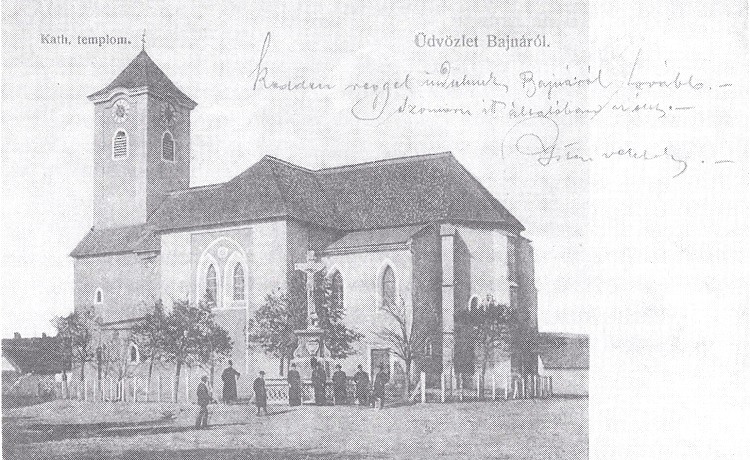 Kath. templom.
Üdvözlet Bajnáról.
Kedden reggel indulunk Bajnáról tovább. –
itt általában
Isten veletek. –